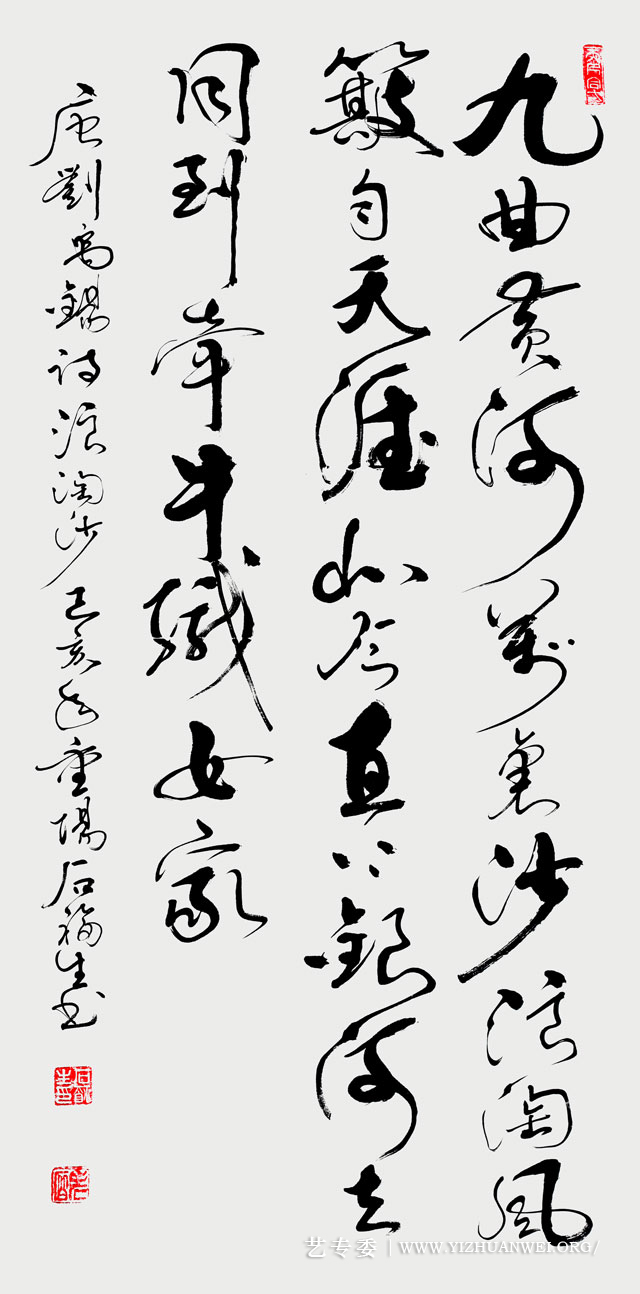 九曲黄河萬裏沙浪淘風
簸自天涯如今直上銀河去
同到牽牛織女家
唐劉禹錫詩浪淘沙己亥年重陽石福生书
艺专委 | WWW.YIZHUANWEI.ORG/